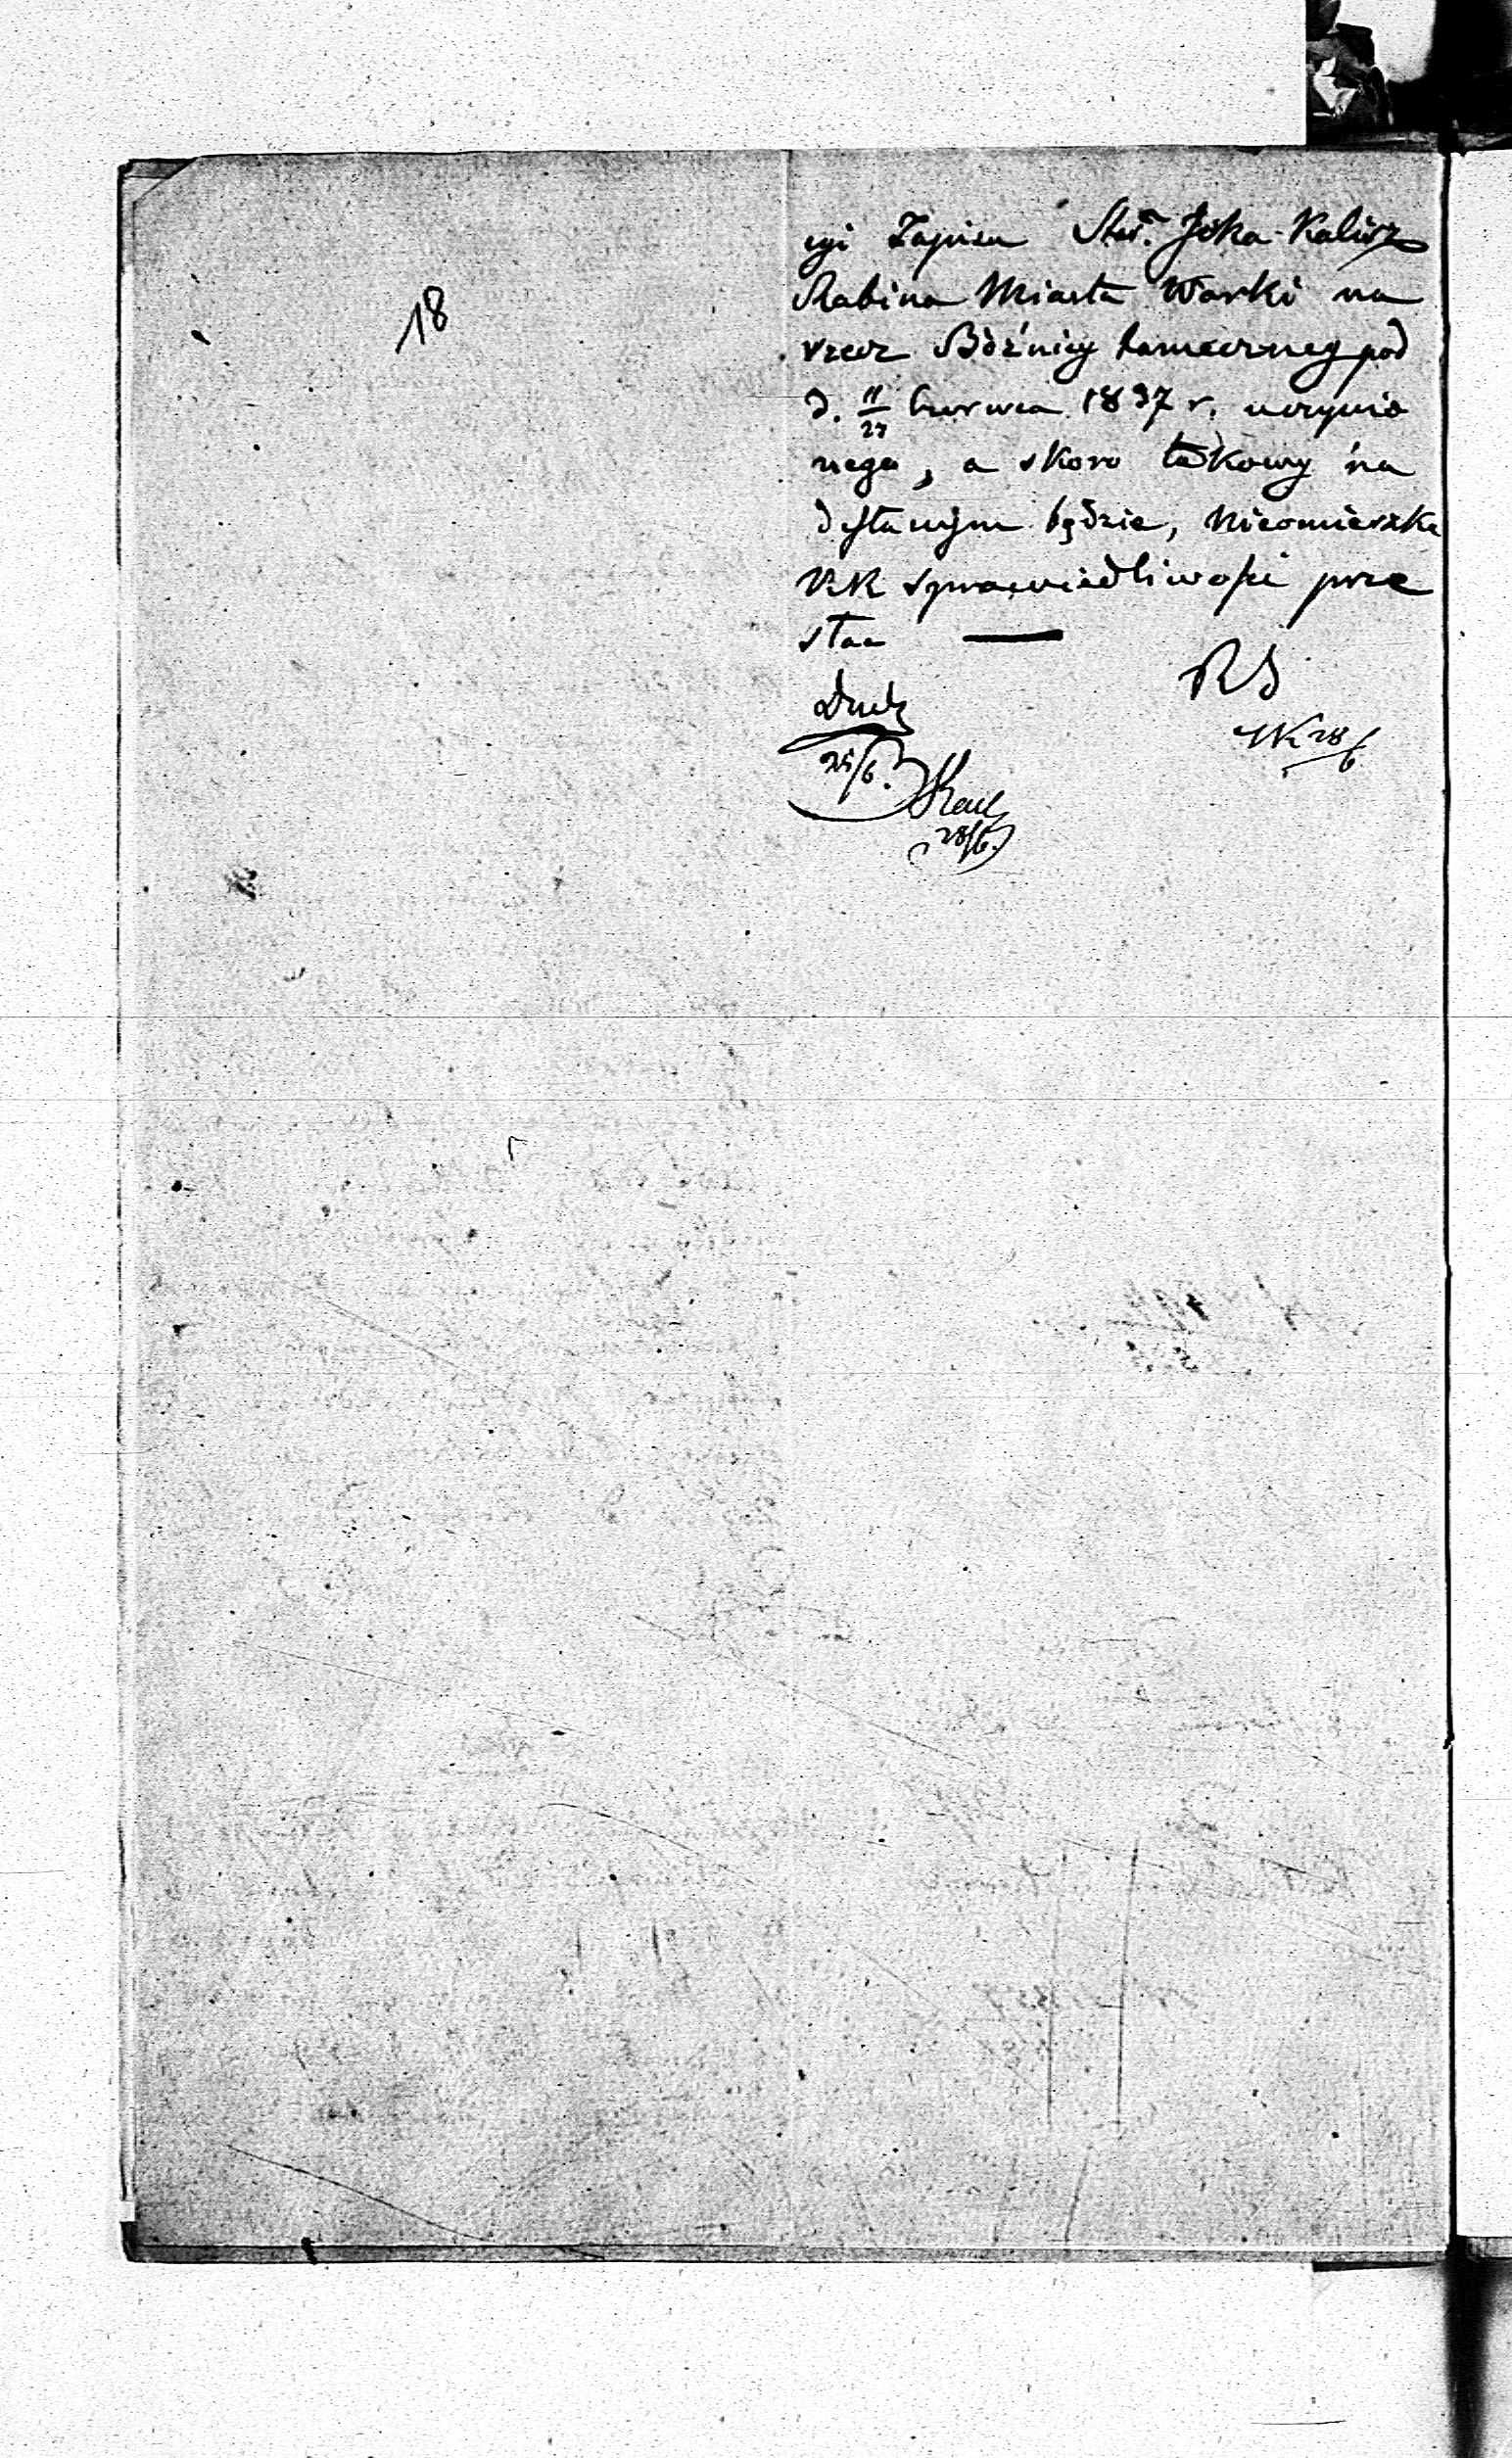 18
cyi Zapisu Star. Joka Kalisz
Rabina Miasta Warki na
rzecz Bóźnicy tameczney pod
d. 11/23 Czerwca 1837 r. uczynio
nego, a skoro takowy na
desłanym będzie, nieomieszka
KR Sprawiedliwości prze
słać —
RS
25/6.
28/6
28/6.